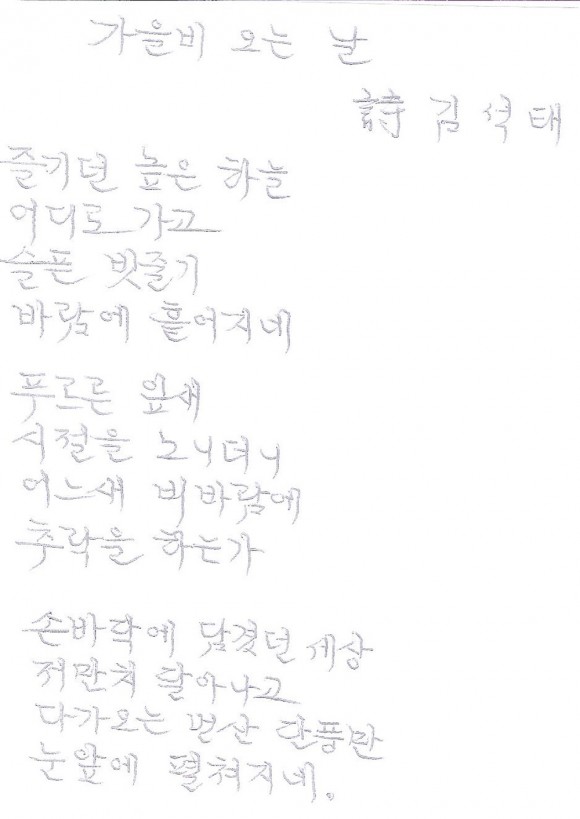 가을비 오는 날
詩 김석태
즐기던 높은 하늘
어디로 가고
슬픈 빗줄기
바람에 흩어지네
푸르른 잎새
시절을 노니더니
어느새 비바람에
추락을 하는가
손바닥에 담겼던 세상
저만치 달아나고
다가오는 먼산 단풍만
눈앞에 펼쳐지네.